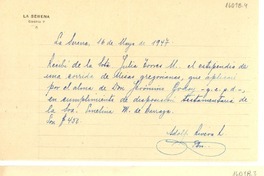 LA SERENA
La Serena, 16 de Mayo de 1947.
Recibí de la Srta. Julia Torres M. el estipendio de
una corrida de Misas gregorianas, que aplicaré
por el alma de Don Jerónimo Godoy (q.e.p.d.)
en cumplimiento de disposición testamentaria de
la Sra. Emelina M. de
Son $ 450.-
Adolfo Rivera R.
Pbro.